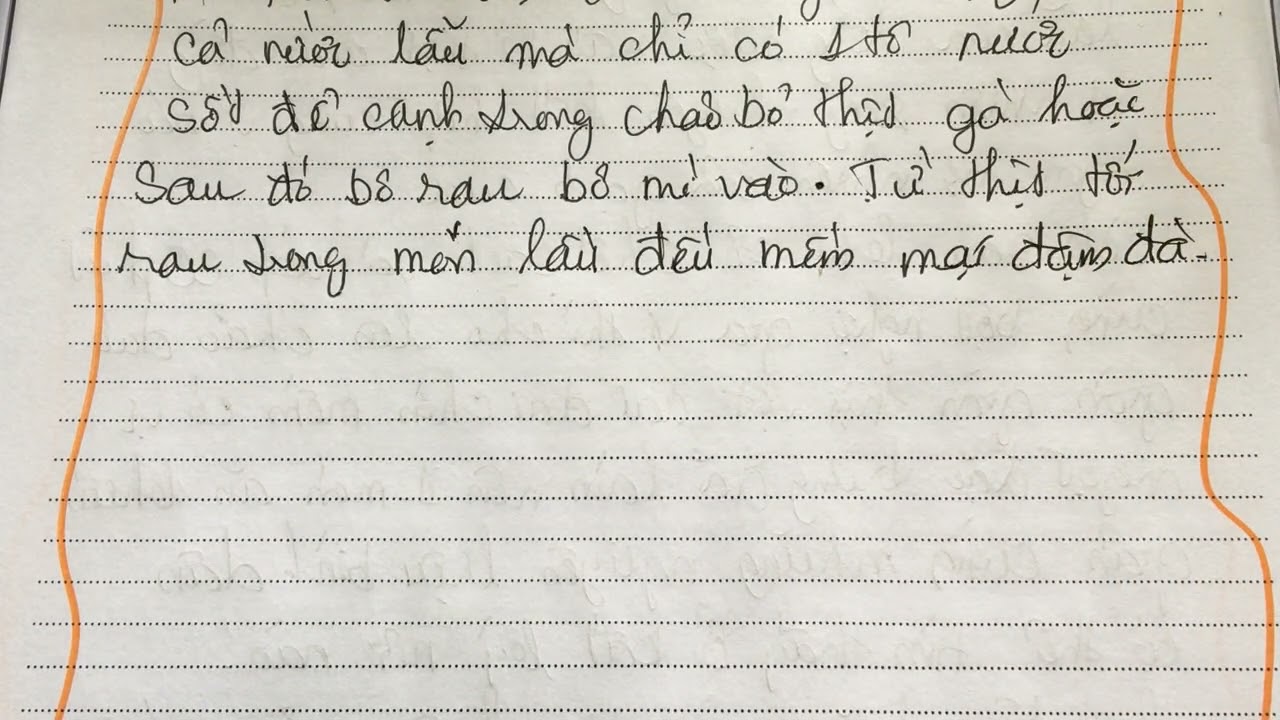 cả nước lẩu mà chỉ có 1 tô nước
sốt để cạnh trong chảo bỏ thịt gà hoặc
Sau đó bỏ rau bỏ mì vào. Từ thịt tới
rau trong món lẩu đều mềm mại đậm đà.